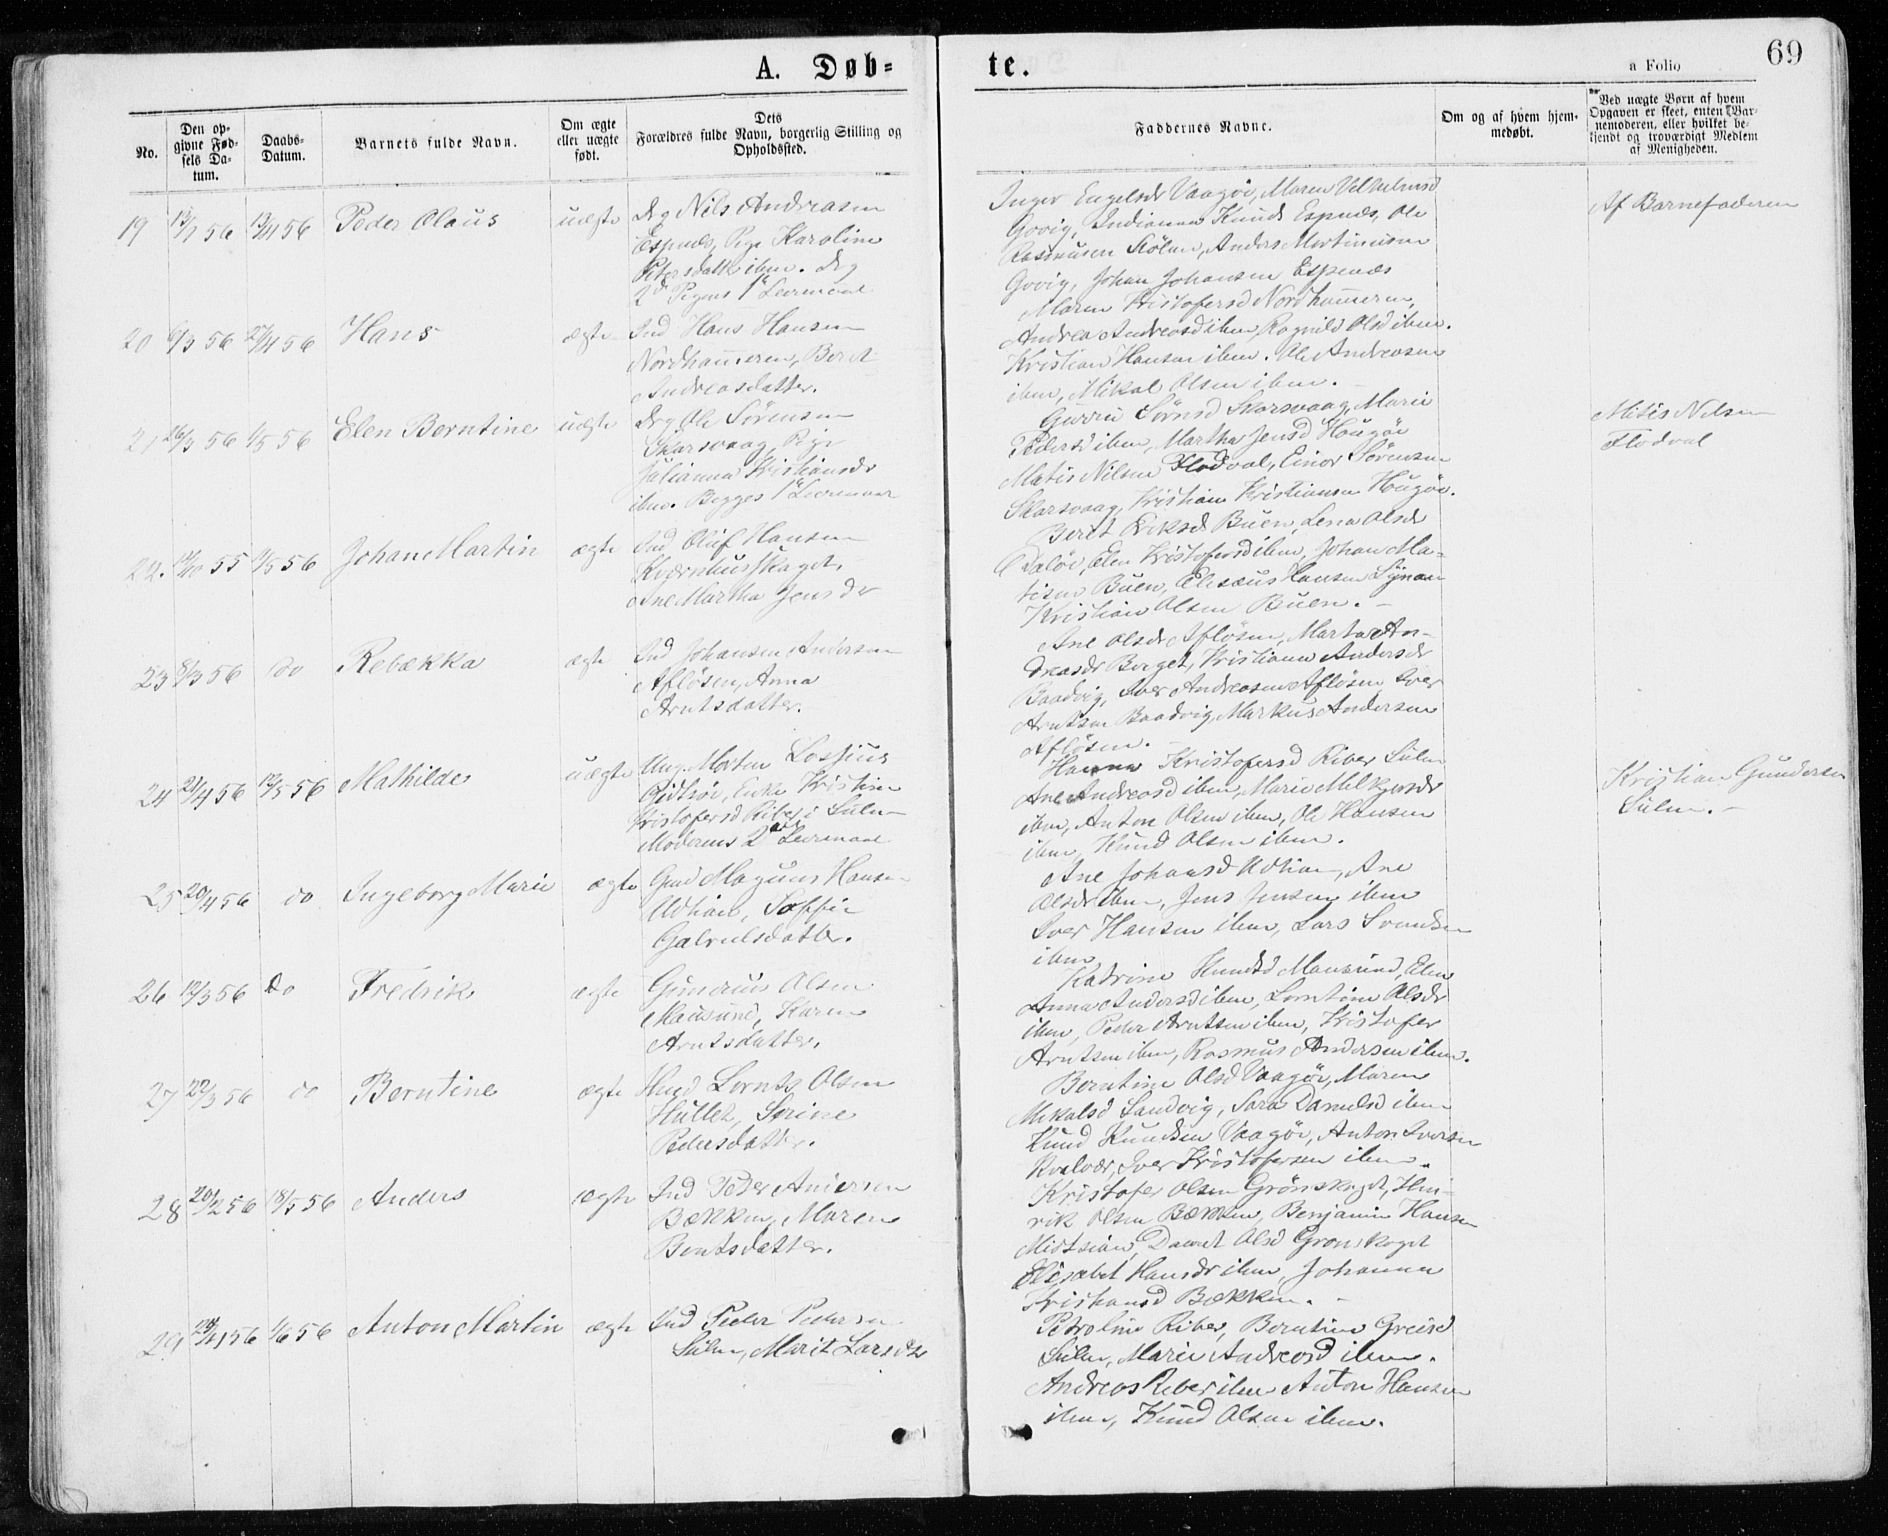 A. Døb-
te.
a Folio
69
No.
Den op-
givne Fød-
sels Da-
tum.
Daabs-
Datum.
Barnets fulde Navn.
Om ægte
eller uægte
født.
Dets
Forældres fulde Navn, borgerlig Stilling og
Opholdssted.
Faddernes Navne.
Om og af hvem hjem-
medøbt.
Ved uægte Børn af hvem
Opgaven er skeet, enten Bar-
nemoderen, eller hvilket be-
kjendt og troværdigt Medlem
af Menigheden.
19 56 13/4 56 Peder Olaus uægte Drg Nils Andreasen
Espnæs, Pige Karoline
Petersdatter ibm. Drg
2d Pigens 1ste Leiermaal
Inger Engelsdr Vaagøe, Maren
Govig, Indianna Knuds Espnæs, Ole
Rasmusen Kølen, Anders Martinusen
Govig, Johan Johansen Espenæs
Af Barnefaderen
20 6/3 56 27/4 56 Hans ægte Ind Hans Hansen
Nordhammeren, Beret
Andreasdatter.
Maren Kristofersd Nordhammeren,
Andrea Andreasd ibm, Ragnild Olsd ibm.
Kristian Hansen ibm. Ole Andreasen
ibm, Mikal Olsen ibm.
21 26/3 56 1/5 56 Elen Berntine uægte Drg Ole Sørensen
Skarsvaag Pige
Julianna Kristiansdr
ibm. Begges 1ste Leiermaal
Gurru Sørnsd Skarsvaag, Marie
Pedersd ibm, Martha Jensd Hougøe
Matis Nilsen Flodval, Einor Sørensen
Skarsvaag, Kristian Kristiansen Hougøe.
Mitis Nilsen
Flodval
22. 55 1/5 56 Johan Martin ægte Ind Oluf Hansen
Kværnhusskaget,
Ane Martha Jensdr
Beret Eriksd Buen, Lena Olsdr
Daløe, Elen Kristofersd ibm, Johan Ma-
tisen Buen, Elesæus Hansen
Kristian Olsen Buen.
23 8/3 56 do Rebækka ægte Ind Johansen Andersen
Afløsen, Anna
Arntsdatter.
Ane Olsdr Afløsen, Marta An-
dreasdr Berget, Kristianna Andersdr
Baadvig, Iver Andreasen Afløsen Iver
Arntsen Baadvig, Markus Andersen
Afløsen.
24 21/4 56 12/5 56 Mathilde uægte Ung. Morten Lossius
Kristine
Kristofersd Riber i Sulen
Moderens 2det Leiermaal
Hanna Kristofersd Riber Sulen
Ane Andreasd ibm, Marie
ibm, Anton Olsen ibm, Ole Hansen
ibm, Knud Olsen ibm.
Kristian Gundersen
Sulen.
25 20/4 56 do Ingeborg Marie ægte Gmd Magnus Hansen
Udtian, Soffie
Gabrielsdatter.
Ane Johansd Udtian, Ane
Olsdr ibm, Jens Jensen ibm
Iver Hansen ibm, Lars Svendsen
ibm,
26 12/3 56 do Fredrik ægte Gunerius Olsen
Mausund, Karen
Arntsdatter.
Katrine Knudsd Mausund, Elen
Anna Andersd ibm, Lorntine Olsdr
ibm, Peder Arntsen ibm, Kristofer
Arntsen ibm, Rasmus Andersen ibm.
27 22/3 56 do Berntine ægte Hmd Lornts Olsen
Hullet, Serine
Pedersdatter.
Berntine Olsd Vaagøe, Maren
Mikalsd Sandvig, Sara Danielsd ibm
Knud Knudsen Vaagøe, Anton Iversen
Kvalvær, Iver Kristofersen ibm.
28 20/2 56 18/5 56 Anders ægte Ind Peder Andersen
Bækken, Maren
Bentsdatter.
Kristofer Olsen Grønskaget, Hen-
rik Olsen Bækken, Benjamin Hansen
Midtsian, Olsd Grønskaget
Elisabet Hansdr ibm, Johanna
Kristiansd Bækken.
29 24/4 56 1/6 56 Anton Martin ægte Ind Peder Pedersen
Sulen, Marit Larsdtr
Petroline Riber, Berntine Greisd
Sulen, Marie Andreasd ibm.
Andreas Riber ibm Anton Hansen
ibm, Knud Olsen ibm.